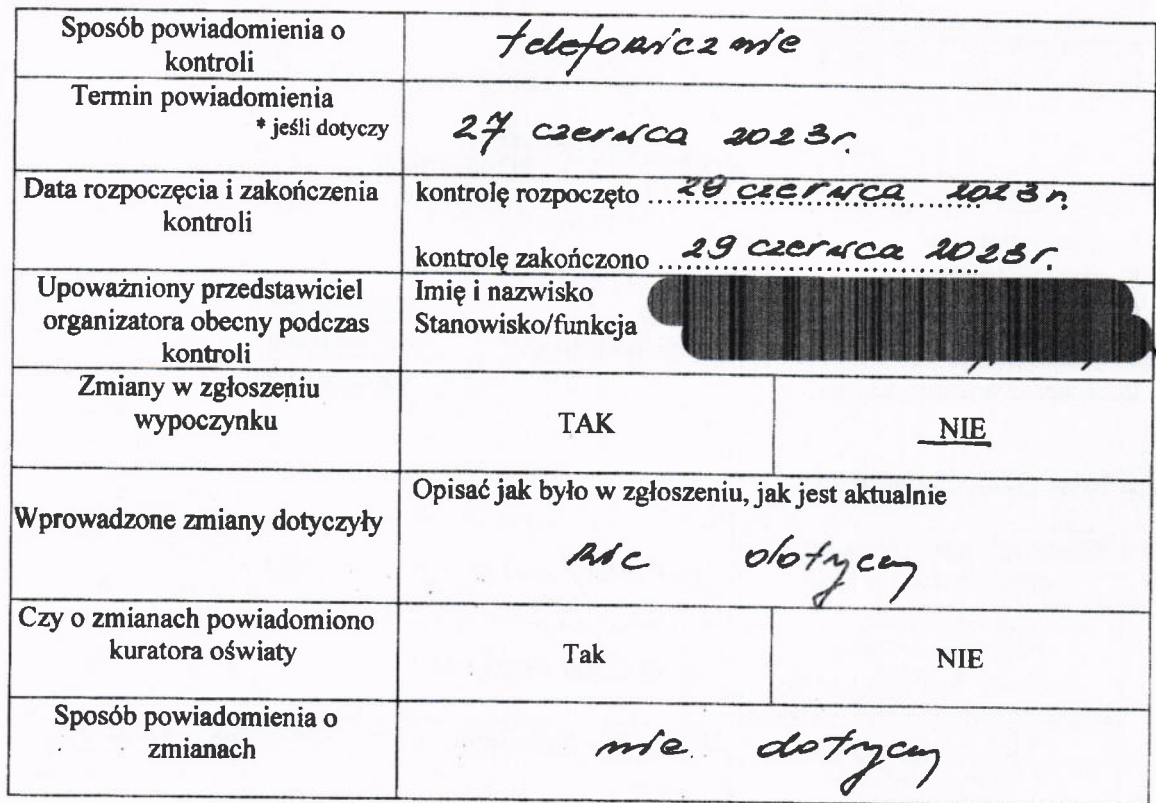 Sposób powiadomienia o
kontroli
telefonicznie
Termin powiadomienia
* jeśli dotyczy
27 czerwca 2023r.
Data rozpoczęcia i zakończenia
kontroli
kontrolę rozpoczęto ... 29 czerwca 2023r.
kontrolę zakończono ... 29 czerwca 2023r.
Upoważniony przedstawiciel
organizatora obecny podczas
kontroli
Imię i nazwisko
Stanowisko/funkcja
Zmiany w zgłoszeniu
wypoczynku
TAK
NIE
Wprowadzone zmiany dotyczyły
Opisać jak było w zgłoszeniu, jak jest aktualnie
nie dotyczy
Czy o zmianach powiadomiono
kuratora oświaty
Tak
NIE
Sposób powiadomienia o
zmianach
nie dotyczy